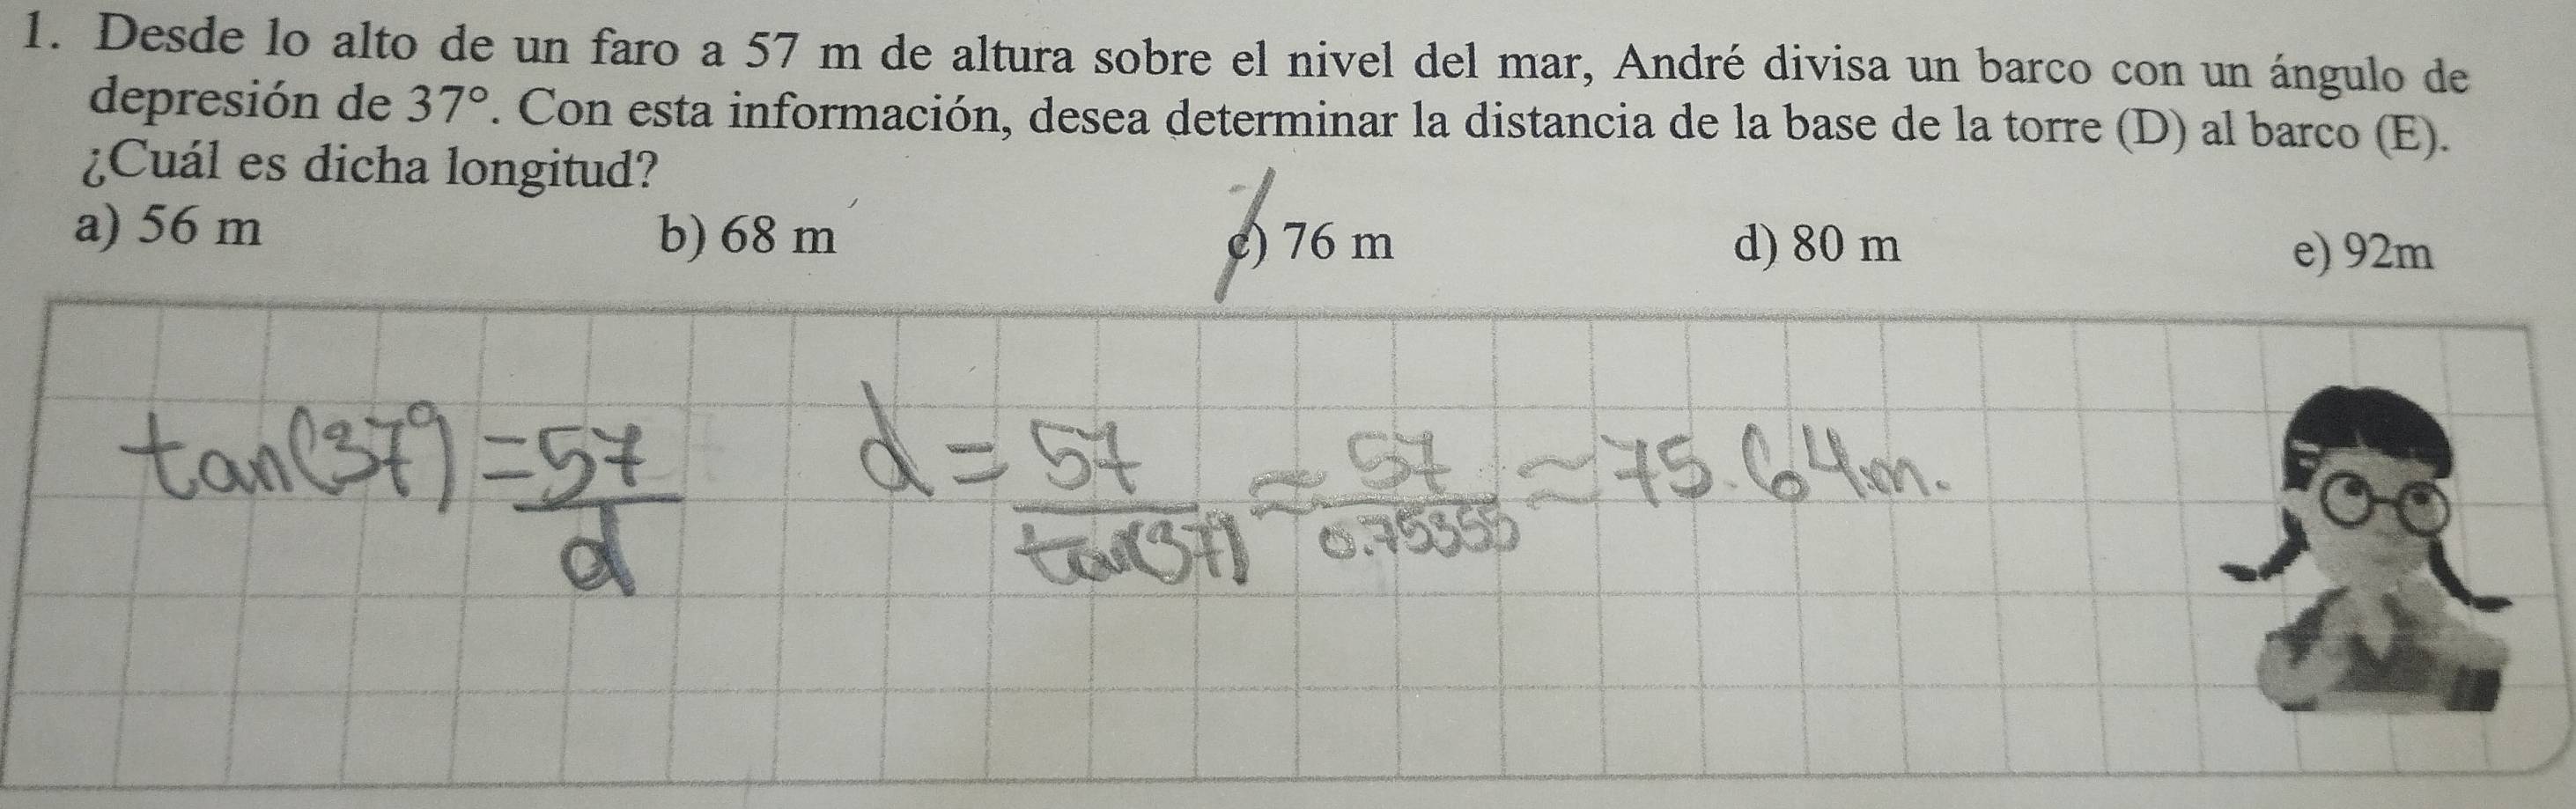 1. Desde lo alto de un faro a 57 m de altura sobre el nivel del mar, André divisa un barco con un ángulo de
depresión de 37°. Con esta información, desea determinar la distancia de la base de la torre (D) al barco (E).
¿Cuál es dicha longitud?
a) 56 m b) 68 m c) 76 m d) 80 m e) 92m
tan(37°) = 57/d d = 57/tan(37°) ≈ 57/0.75355 ≈ 75.64m.